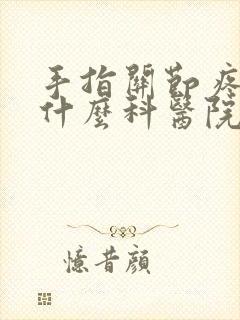 手指關節疼
什麼科醫院
憶昔顏